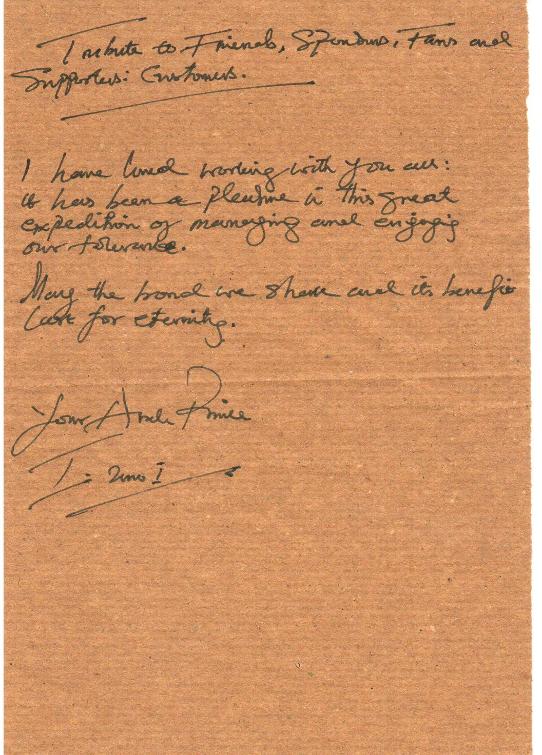 Tribute to Friends, Sponsors, Fans and
Supporters: Customers.
I have loved working with you all:
it has been a pleasure in this great
expedition of managing and engaging
our tolerance.
May the bond we share and its benefits
last for eternity.
Your Arch Prince